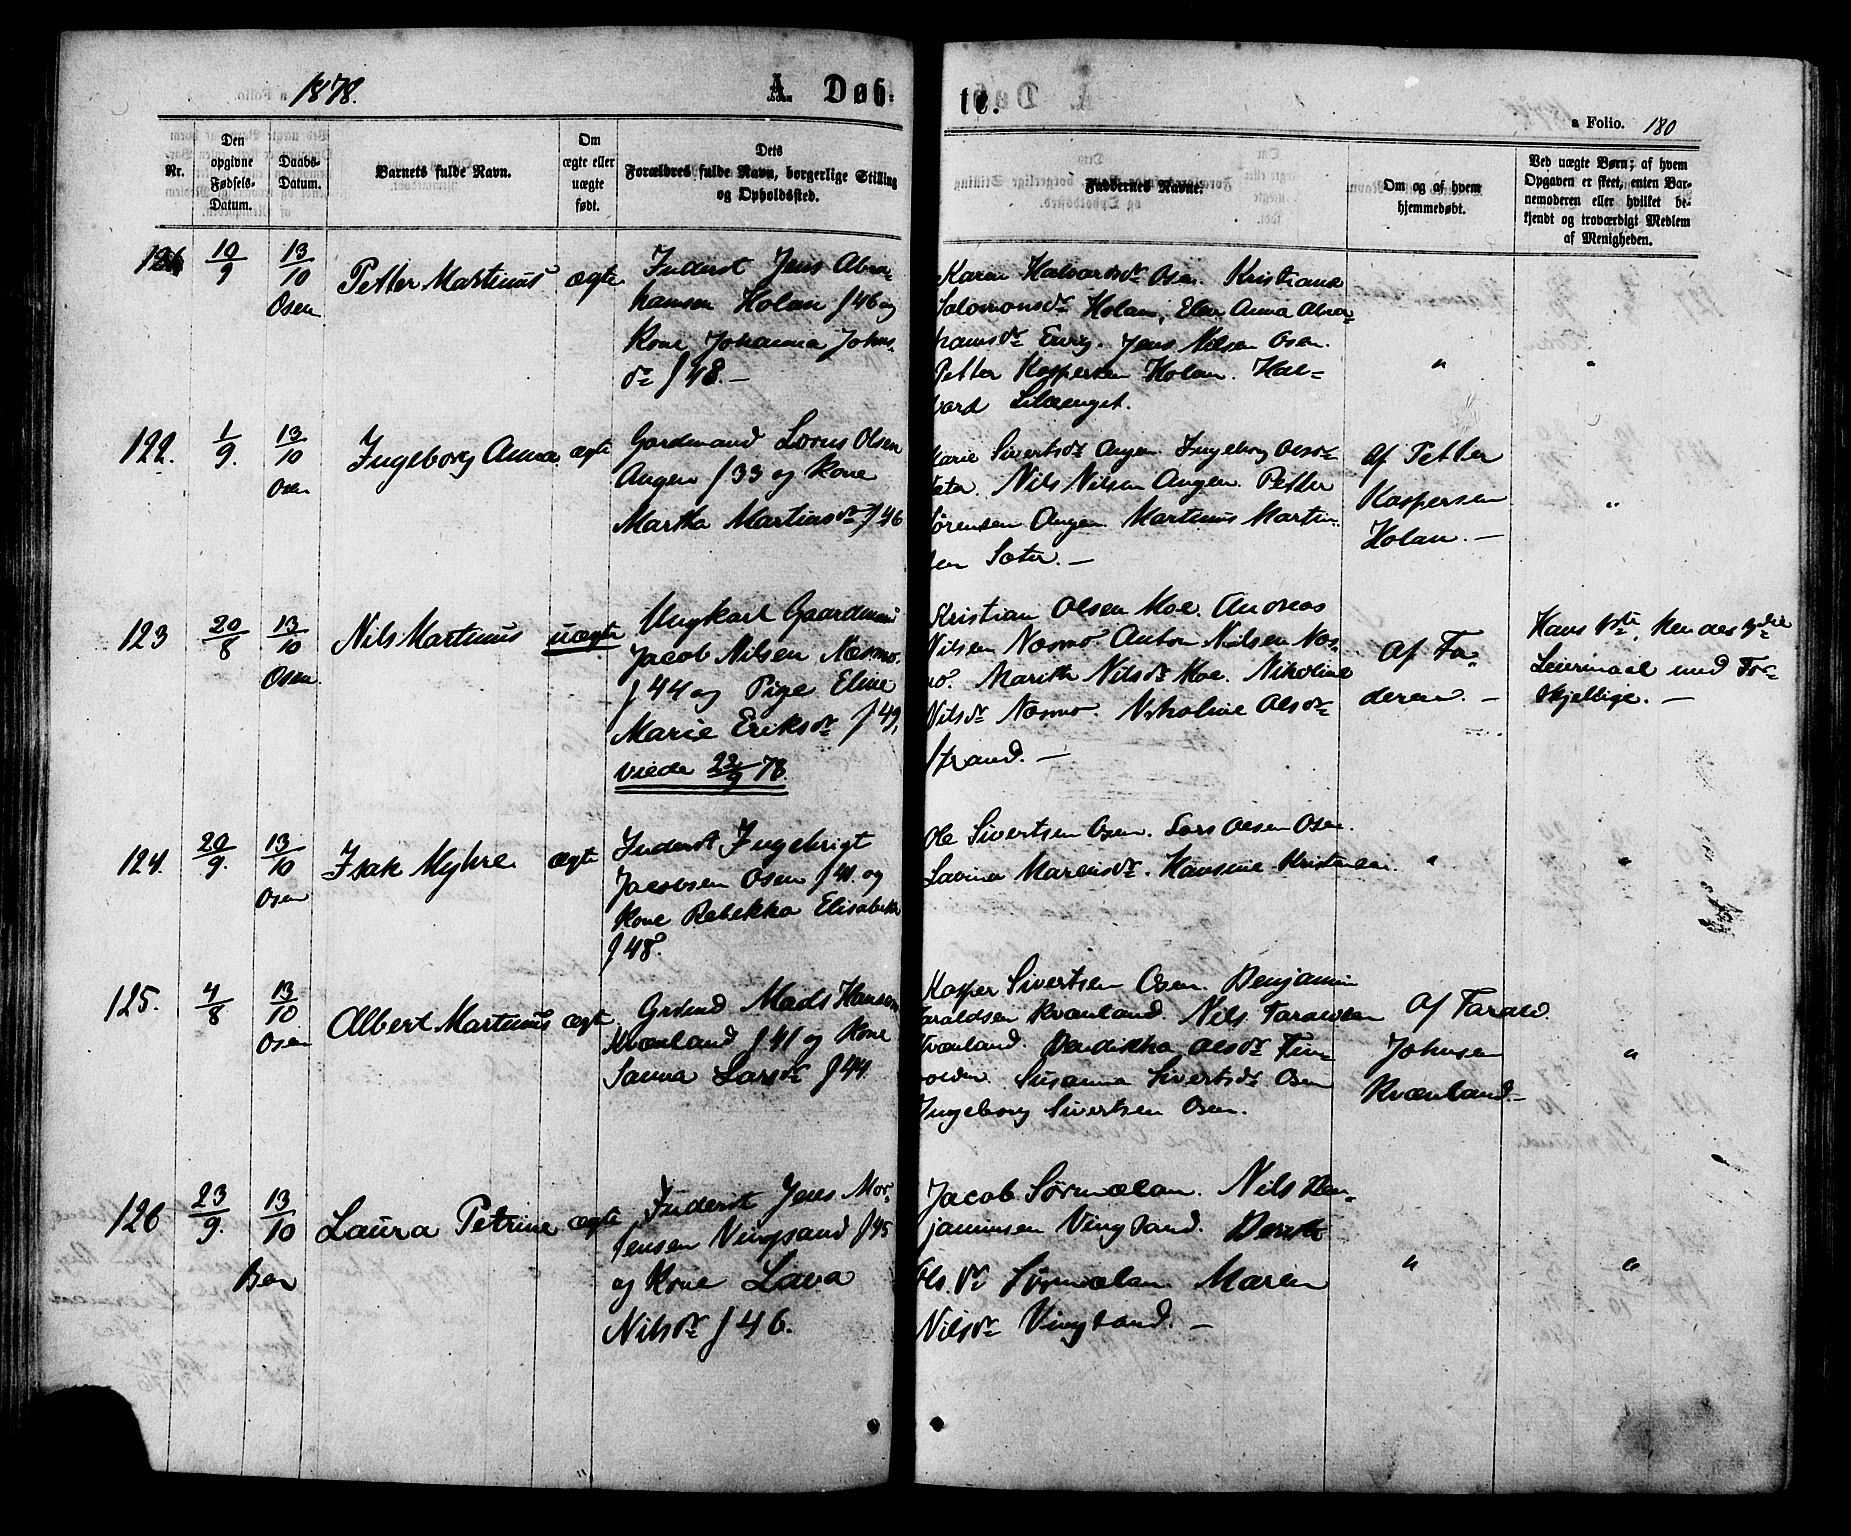 1878.
A. Døb-
te.
a Folio. 180
Nr.
Den opgivne Fødsels-Datum.
Daabs-Datum.
Barnets fulde Navn.
Om ægte eller uægte født.
Dets Forældres fulde Navn, borgerlige Stilling og Opholdssted.
Faddernes Navne.
Om og af hvem hjemmedøbt.
Ved uægte Børn; af hvem Opgaven er skeet, enten Barnemoderen eller hvilket bekjendt og troværdigt Medlem af Menigheden.
121 10/9 13/10 Osen
Petter Martinus ægte
Inderst Jens Abra-
hamsen Holan f 46 og
Kone Johanna Johns-
dr f 48. —
Karen Halvardsdr Osen. Kristiane
Salomonsdr Holan, Elen Anna Abra-
hamsdr Envig. Jens Nilsen Osen.
Petter Kaspersen Holan. Hal-
vard
" "
122. 1/9. 13/10 Osen
Ingeborg Anna. ægte
Gardmand Lorns Olsen
Angen f 33 og Kone
Martha Martinsdr f 46
Marie Sivertsdr Angen. Ingeborg Olsdr
Sæter. Nils Nilsen Angen. Petter
Sørensen Angen. Martinus Martin-
sen Sæter. —
Af Petter
Kaspersen
Holan. —
"
123 20/8 13/10 Osen.
Nils Martinus uægte
Ungkarl Gaardmand
Jacob Nilsen Næsmo.
f 44 og Pige Eline
Marie Eriksdr f 49,
viede 22/9 78.
Kristian Olsen Moe. Andreas
Nilsen Næsmo. Anton Nilsen Næs-
mo. Marith Nilsdr Moe. Nikoline
Nilsdr Næsmo. Nikoline Olsdr
Strand. —
Af Fa-
deren. —
Hans 1ste, Hendes
Leiermaal med For-
skjellige. —
124. 20/9. 13/10 Osen
Isak Myhre ægte
Inderst Ingebrigt
Jacobsen Osen f 41. og
Kone Rebekka Elisabeth
f 48.
Ole Sivertsen Osen. Lars Olsen Osen.
Lavina Mareusdr. Hansine Kristensen.
" "
125. 4/8 13/10 Osen
Albert Martinus ægte
Grdmd Mads Hansen
Kvænland f 41 og Kone
Sanna Larsdr f 44
Kasper Sivertsen Osen. Benjamin
Taraldsen Kvænland. Nils Taraldsen
Kvænland. Bendikka Olsdr Tin-
Susanna Sivertsdr Osen
Ingeborg Sivertsen Osen.
Af Tarald.
Johnsen
Kvænland. —
"
126 23/9. 13/10 Osen
Laura Petrine ægte
Inderst Jens Mor-
tensen Vingsand f 45
og Kone Lava
Nilsdr f 46.
Jacob Sørmælan. Nils Ben-
jaminsen Vingsand. Berith
Ols.dr Sørmælan. Maren
Nilsdr Vingsand. —
" "